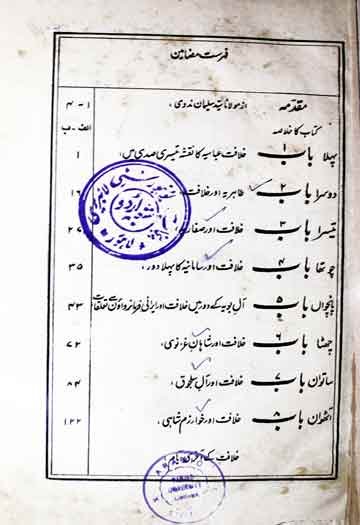 فہرست مضامین
مقدمہ از مولانا سید سلیمان ندوی، ۱-۴
کتاب کا خلاصہ الف-ب
پہلا باب ۱ خلافت عباسیہ کا نقشہ تیسری صدی میں، ۱
دوسرا باب ۲ طاہریہ اور خلافت، ۱۶
تیسرا باب ۳ خلافت اور صفاریہ، ۲۷
چوتھا باب ۴ خلافت اور سامانیہ کا پہلا دور، ۳۵
پانچواں باب ۵ آل بویہ کے دور میں خلافت اور ایرانی فرمانرواؤں سے تعلقات ۴۳
چھٹا باب ۶ خلافت اور شاہان غزنوی، ۷۲
ساتواں باب ۷ خلافت اور آل سلجوق، ۸۴
آٹھواں باب ۸ خلافت اور خوارزم شاہی، ۱۲۲
خلافت کے
شعبہ اردو
لاہور
PANJAB
UNIVERSITY
LAHORE